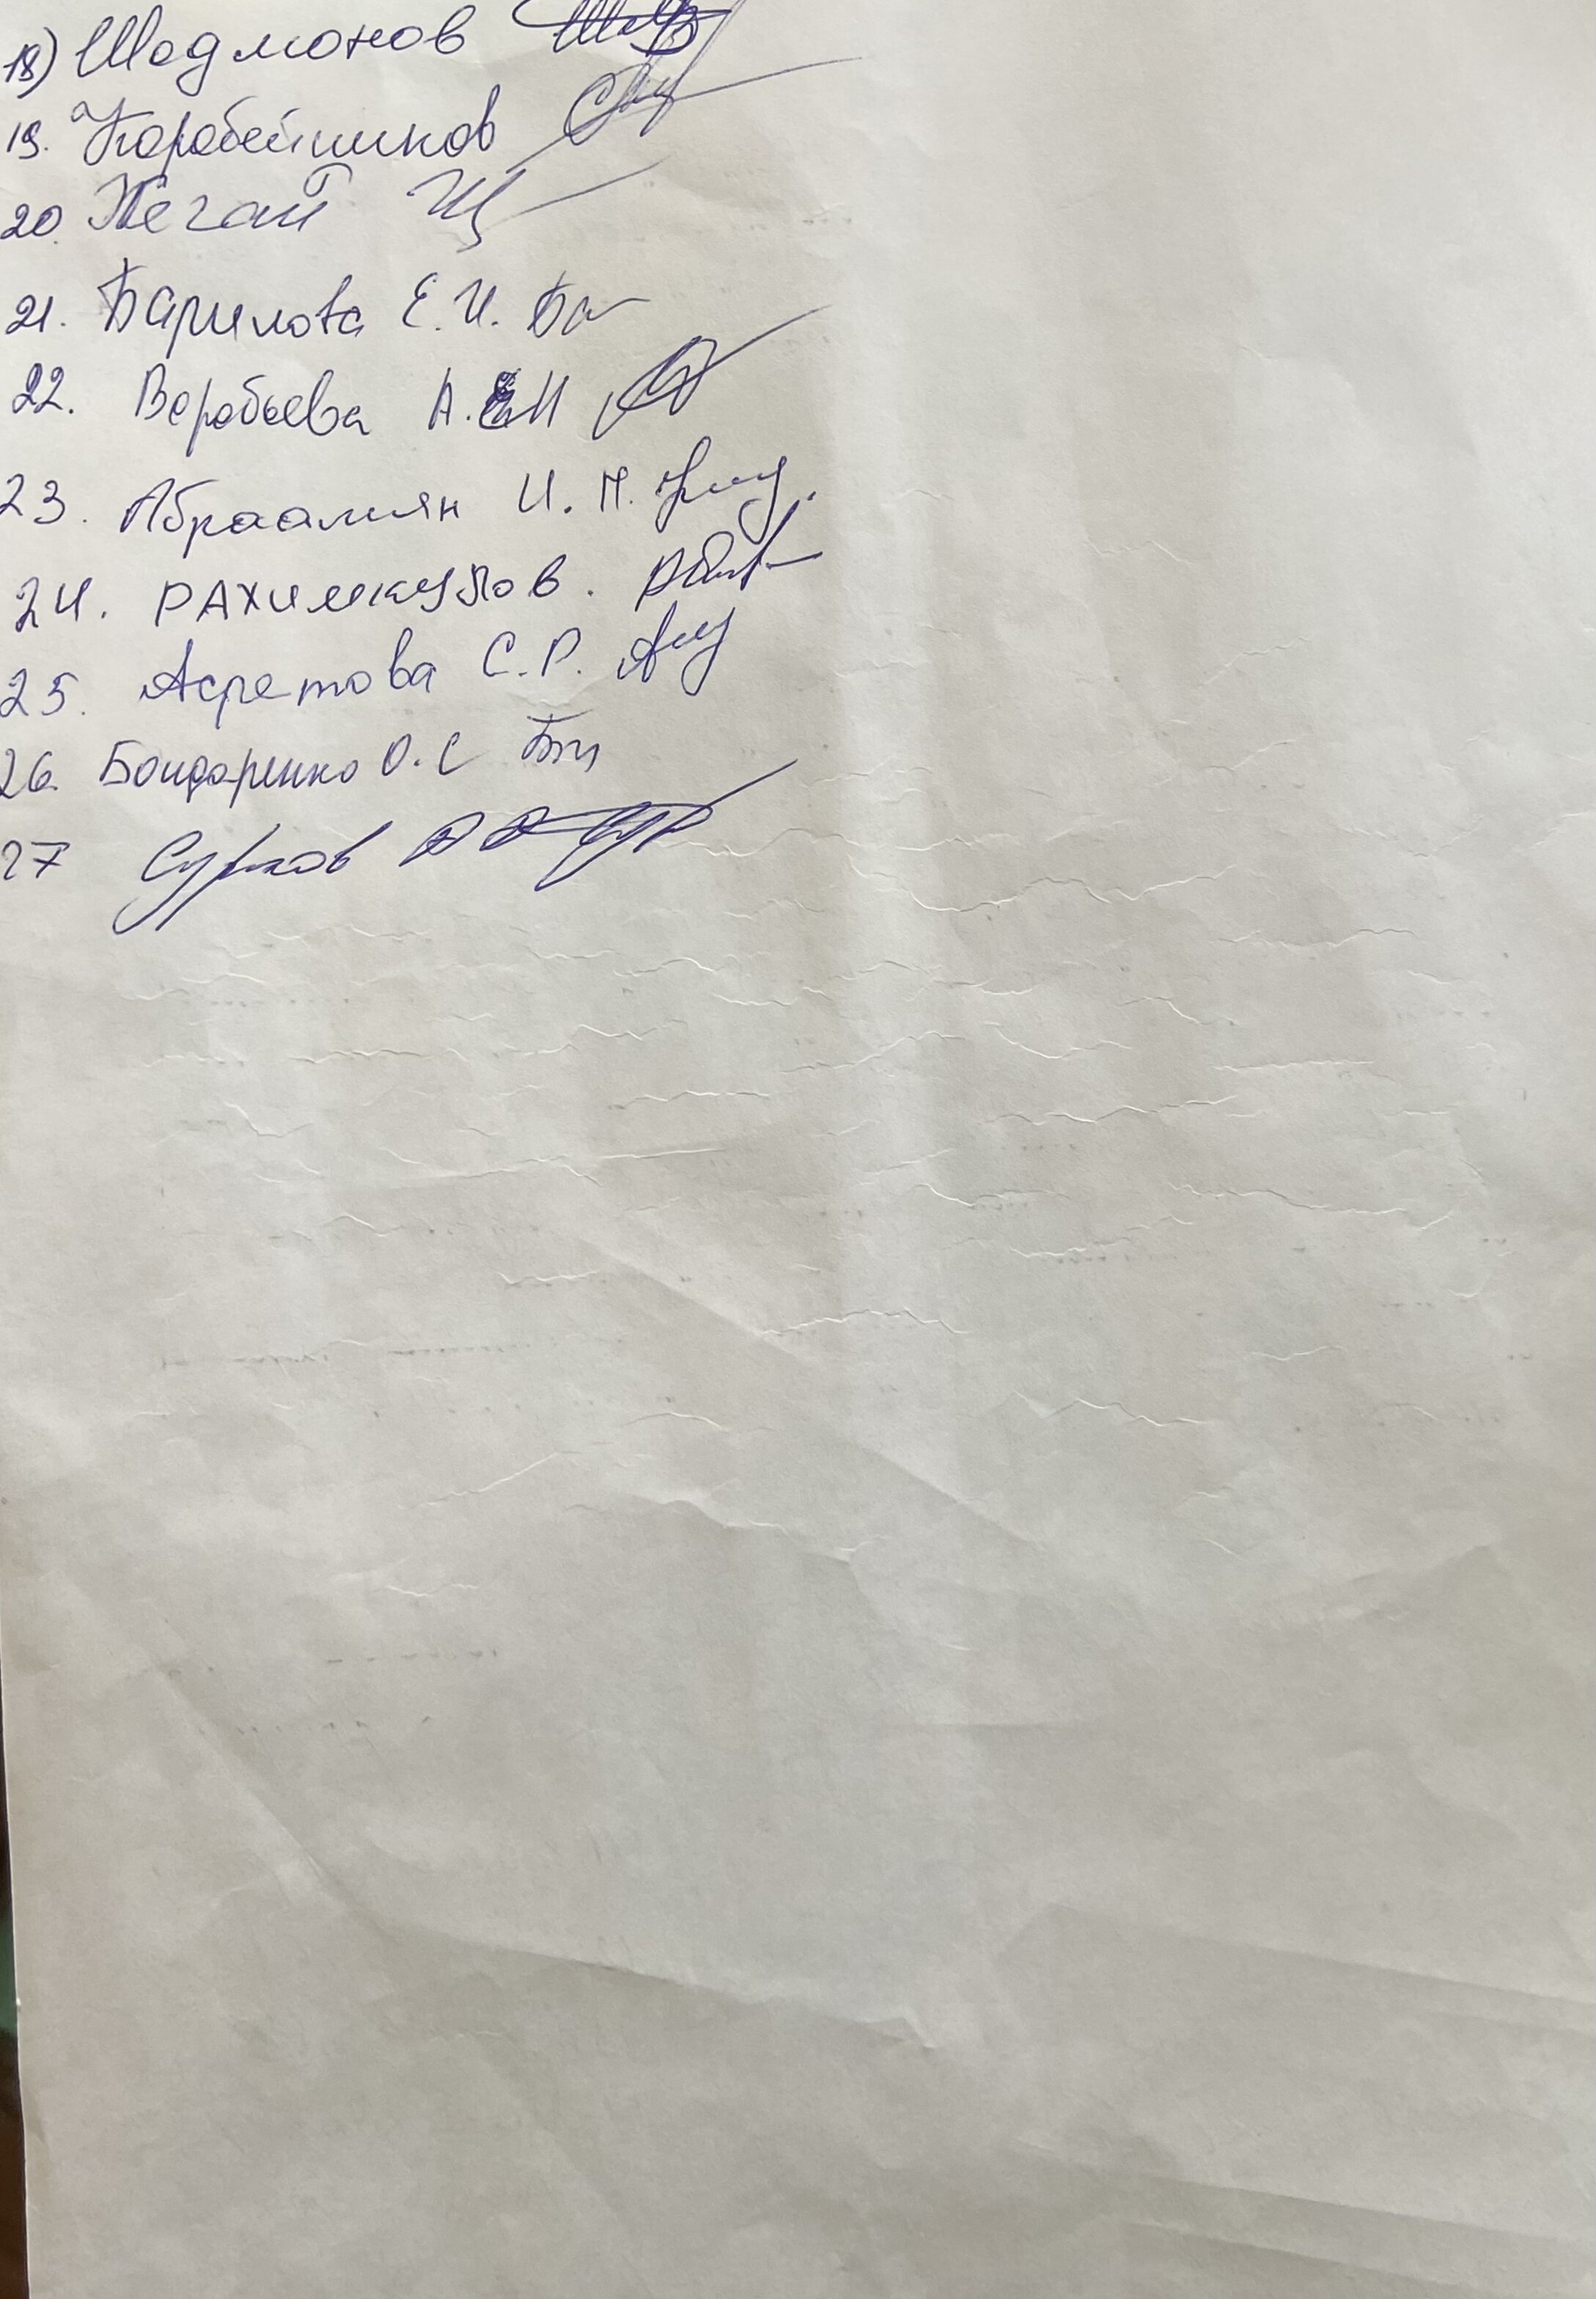 18) Шодмонов
19. Коробейников
20. Пегай
21. Барилова Е. И. Ба
22. Воробьева А.
23. Абраамян И. М.
24. РАХИМКУЛОВ.
25. Асретова С. Р.
26. Бондаренко О. С
27 Сурков